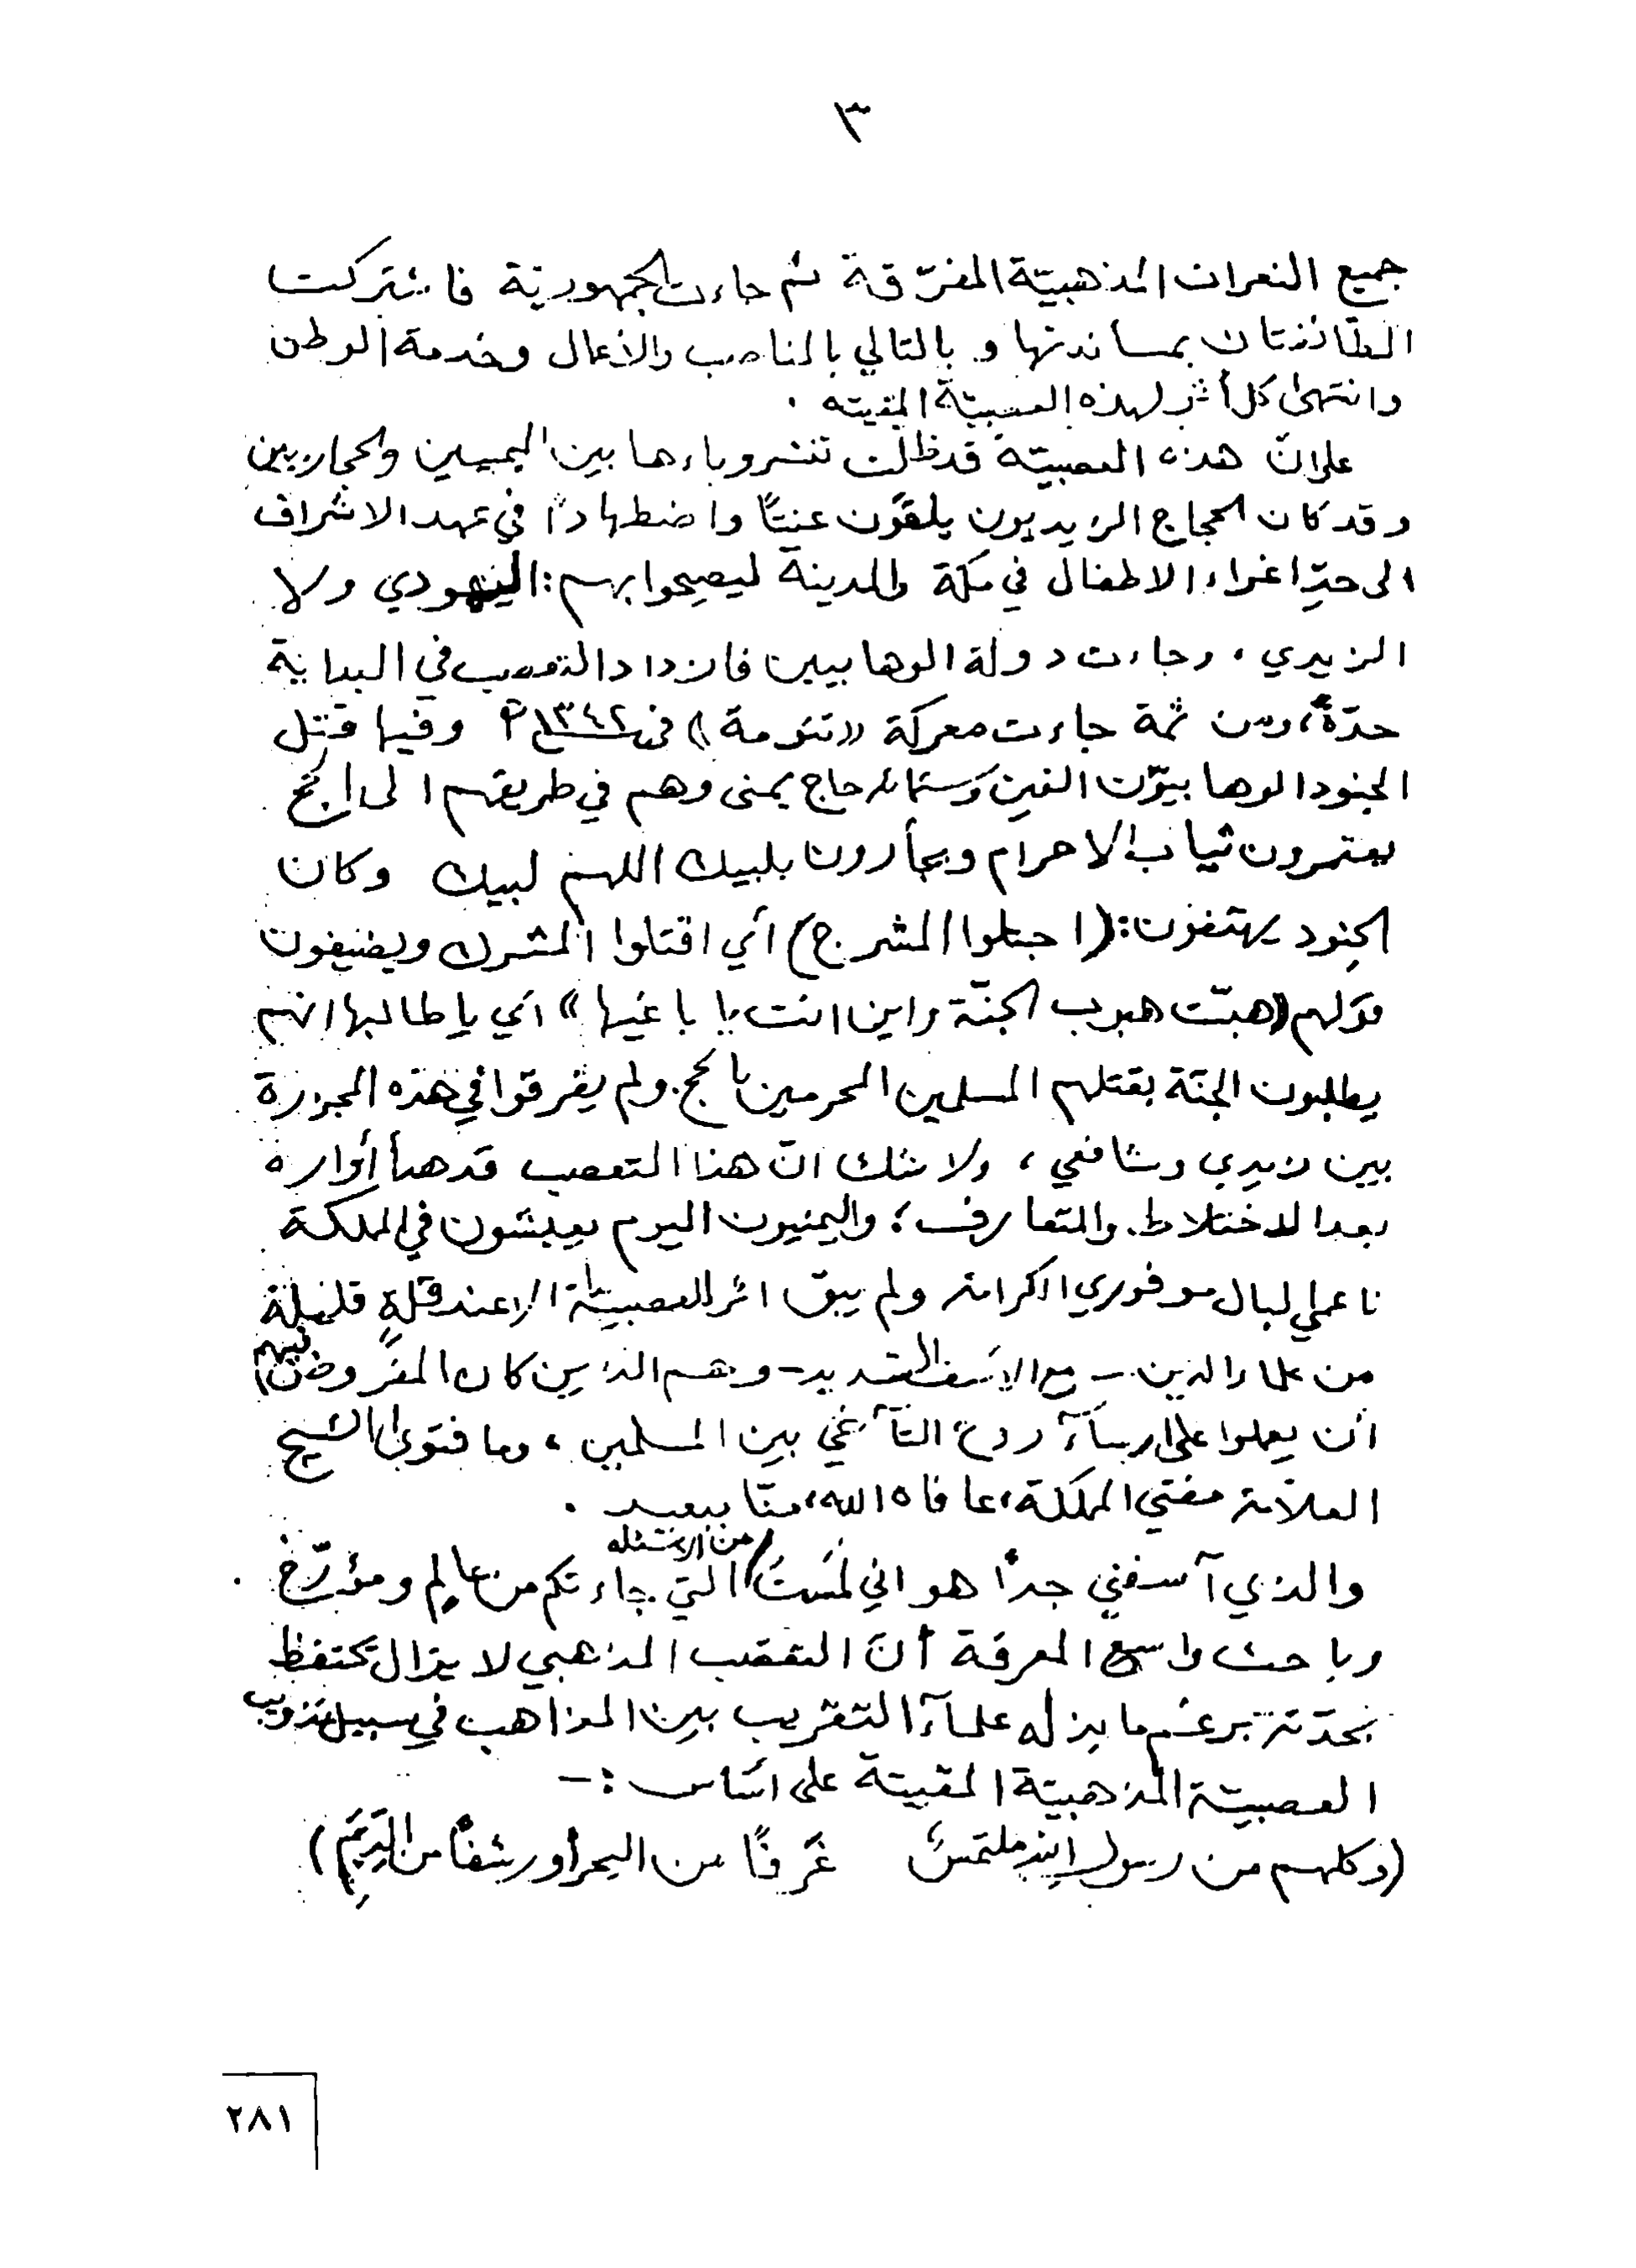 ٣
جميع النعرات المذهبيّة المفرّقة ثم جاءت الجمهوريّة فاشتركت
الطائفتان بمساندتها و بالتالي بالمناصب والأعمال وخدمة الوطن
وانتهى كل أثر لهذه العصبيّة المقيته .
على انّ هذه العصبيّة قد ظلّت تنشر وباءها بين اليمنيين والحجازيين
وقد كان الحجاج الزيديون يلقَون عنتًا واضطهادًا في عهد الاشراف
الى حدِّ اغراء الاطفال في مكة والمدينة ليصيحوا بهم : اليهودي ولا
الزيدي ، وجاءت دولة الوهابيين فازداد التعصب في البداية
حدّةً، ومن ثمة جاءت معركة «تنومة» في ١٣٤٢ وفيها قتل
الجنود الوهابيّون الفين وستمائه حاج يمنى وهم في طريقهم الى الحج
يعتمرون ثياب الاحرام ويجأرون بلبيك اللهم لبيك وكان
الجنود يهتفون : (اجتلوا المشرج) أي اقتلوا المشرك ويضيفون
قولهم «هبّت هبوب الجنّة واين انت يا باغيها » اي يا طالبها انهم
يطلبون الجنّة بقتلهم المسلمين المحرمين بالحج. ولم يفرقوا في هذه المجزرة
بين زيدي وشافعي ، ولا شك انّ هذا التعصب قد هدأ أواره
بعد الاختلاط. والتعارف ؛ واليمنيون اليوم يعيشون في المملكة
ناعمي البال موفوري الكرامة ولم يبق اثر للعصبيّة الا عند قلةٍ قليلة
من علماء الدين - مع الاسف الشديد - وهم الذين كان المفروض فيهم
أن يعملوا على ارساء روح التآخي بين المسلمين ، وما فتوى الشيخ
العلاّمة مفتي المملكة، عافاه الله، منّا ببعيد .
والذي آسفني جداً هو اني لمَستُ من الاسئله التي جاءتكم من عالم ومؤرّخ
وباحث واسع المعرفة أنّ التعصّب المذهبي لا يزال يحتفظ
بحدّته برغم ما بذله علمآء التقريب بين المذاهب في سبيل تذويب
العصبيّة المذهبيّة المقيتة على اساس : -
(وكلهم من رسول الله ملتمسٌ غَرفًا من البحر أو رشفًا من الدِيَمِ)
٢٨١